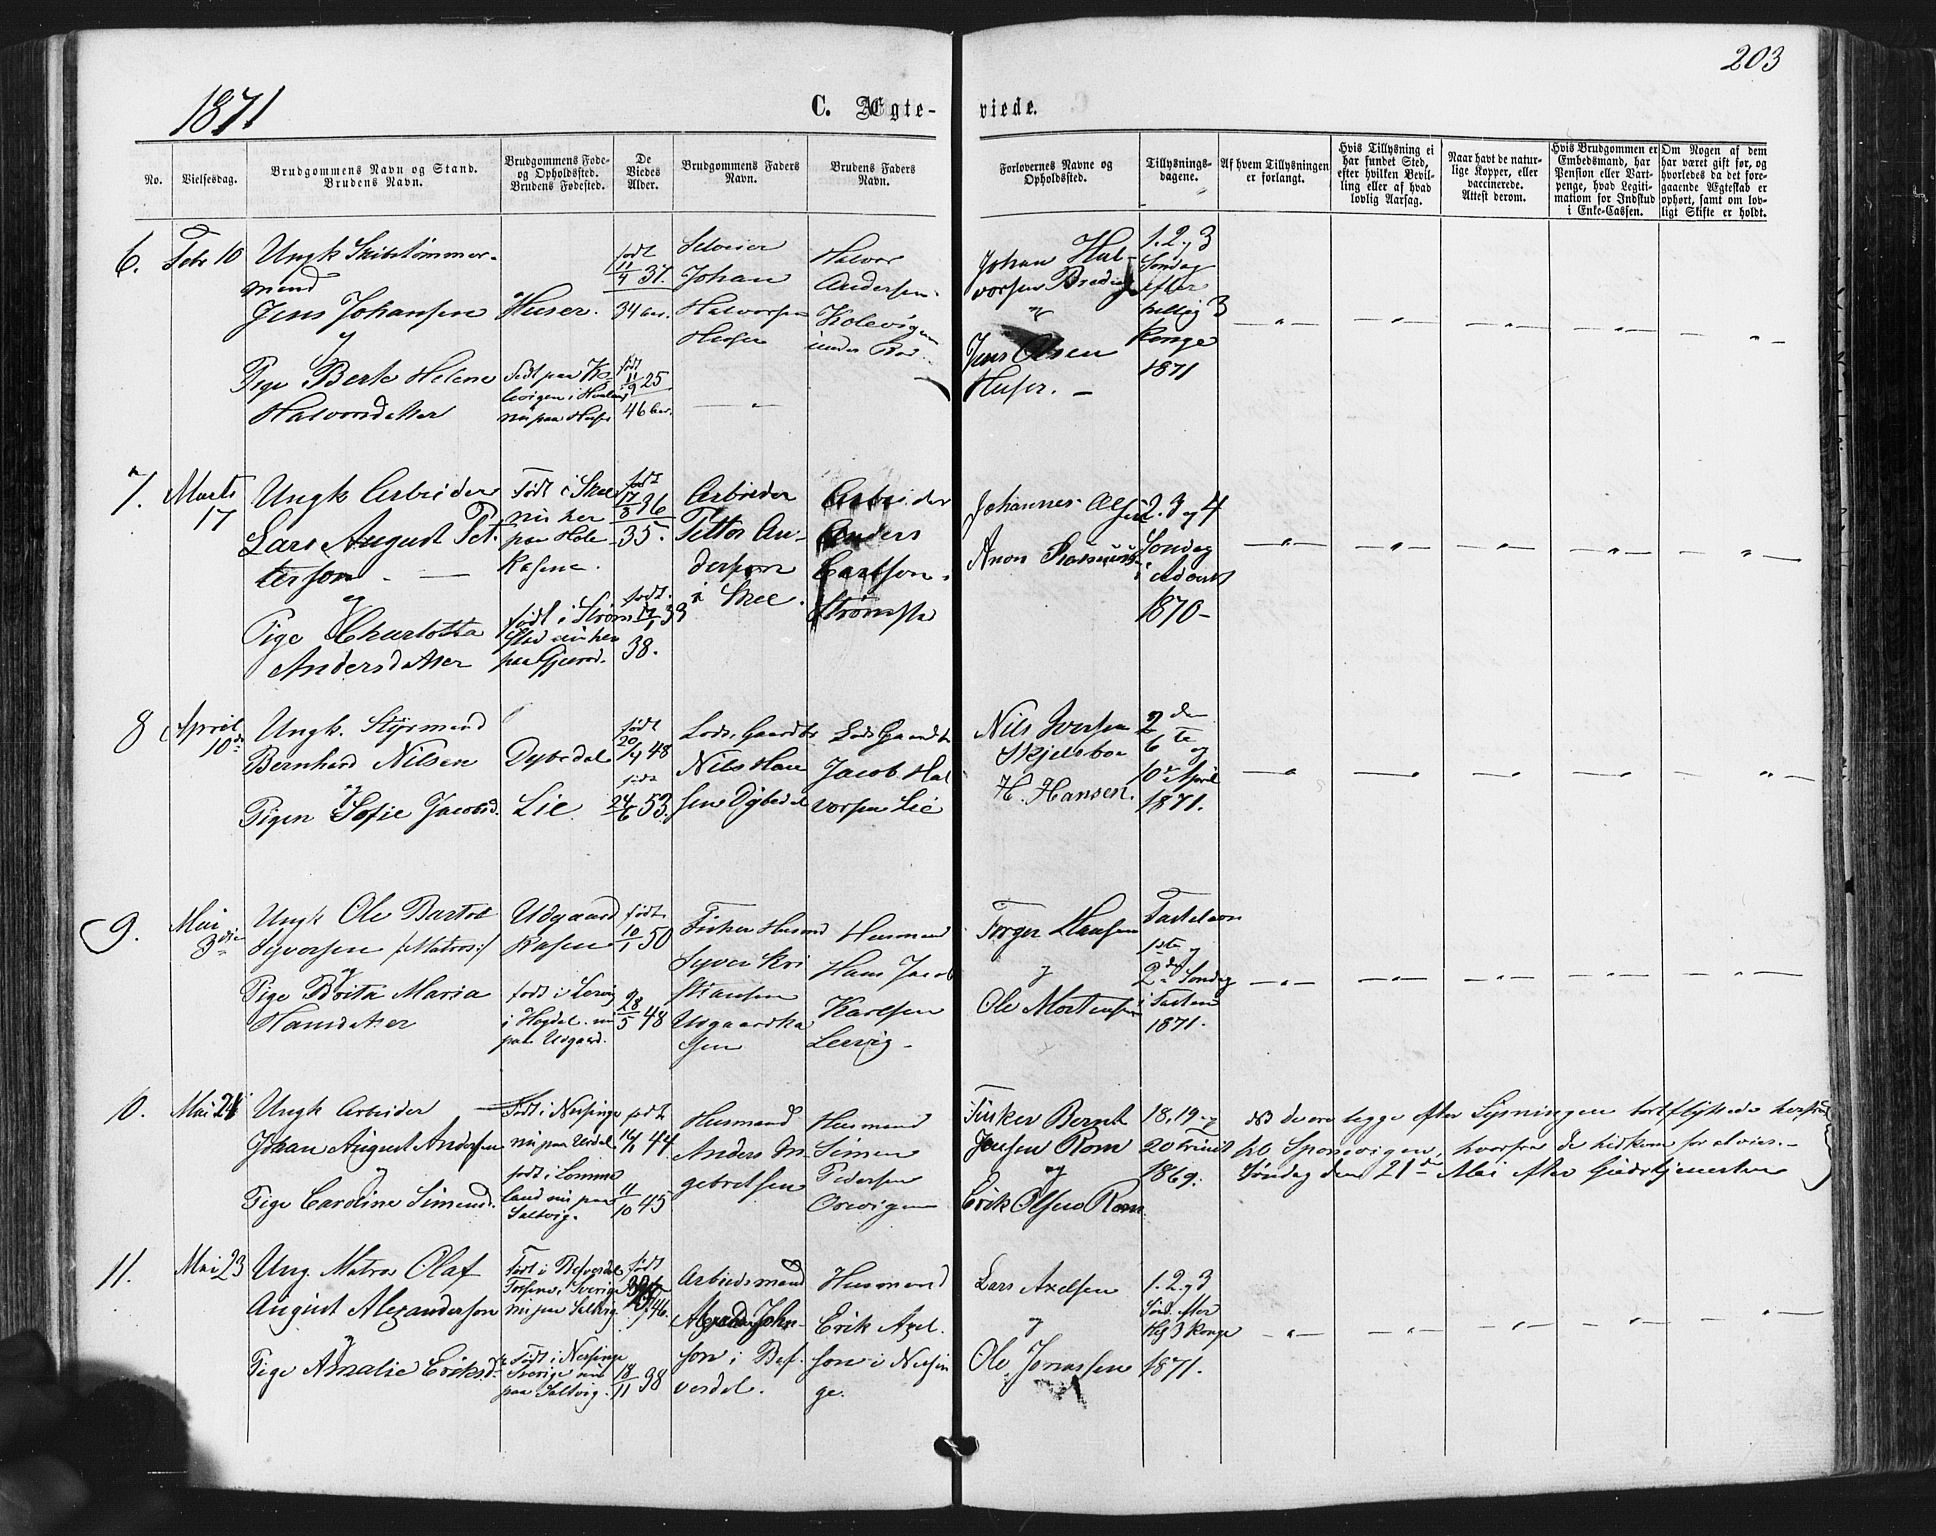 203
1871
C. Ægte- viede.
No.
Vielsesdag.
Brudgommens Navn og Stand.
Brudens Navn.
Brudgommens Føde-
og Opholdssted.
Brudens Fødested.
De
Viedes
Alder.
Brudgommens Faders
Navn.
Brudens Faders
Navn.
Forlovernes Navne og
Opholdssted.
Tillysnings-
dagene.
Af hvem Tillysningen
er forlangt.
Hvis Tillysning ei
har fundet Sted,
efter hvilken Bevil-
ling eller af hvad
lovlig Aarsag.
Naar havt de natur-
lige Kopper, eller
vaccinerede.
Attest derom.
Hvis Brudgommen er
Embedsmand, har
Pension eller Vart-
penge, hvad Legiti-
mation for Indskud
i Enke-Cassen.
Om Nogen af dem
har været gift før, og
hvorledes da det fore-
gaaende Ægteskab er
ophørt, samt om lov-
ligt Skifte er holdt.
6.
Febr 10
Ungk Skibstømmer-
mand
Jens Johansen
og
Pige Berte Helene
Halvorsdatter
Huser.
født paa Ko
levigen i
nu paa Huser
født
11/4 37.
34
født
11/9 25
46
Selveier
Johan
Halvorsen
Huser
Halvor
Andersen
Kolevigen
under
Johan Hal-
vorsen
og
Jens Olsen
Huser. –
1. 2. og 3
Søndag
efter
hellig 3
Konge
1871
7.
Marts
17
Ungk Arbeider
Lars August Pet-
terson
og
Pige Charlotta
Andersdatter
Født i Skee
nu her
paa Hole
Kasene.
født i Strøm
stad nu her
paa
født
17/8 36
35.
født
17/1 33
38.
Arbeider
Petter An-
derson
i Skee.
Arbeider
Anders
Carlson
Strømsta
Johannes Olsen
Anon Rasmussen
2. 3 og 4
Søndag
i Advent
1870 –
8
April
10de
Ungk. Styrmand
Bernhard Nilsen
og
Pigen Sofie Jacobsd.
Dybedal
Lie
født
20/4 48
født
24/6 53.
Lods, Gaardbr
Nils Han
sen Dybedal
Lods Gaardbr
Jacob Hal
vorsen Lie
Nils Iversen
Skjelsboe
H. Hansen.
2den
6te og
10de April
1871.
9.
Mai
3die
Ungk Ole Bartol
Syversen /:Matros:/
og
Pige Brita Maria
Hansdatter
Udgaard
Kasene
født i Lervig
i Hogdal. nu
paa Udgaard.
født
10/1 50
28/5 48
Fisker Husmd
Syver Kri
stiansen
Udgaardka
sen
Husmand
Hans Jacob
Karlsen
Lervig
Torger Hansen
og
Ole Mortensen
Fastelavn
1ste
og
2den Søndag
i Fasten
1871.
10.
Mai 21
Ungk Arbeider
Johan August Andersen
og
Pige Caroline Simensd.
Født i Nessinge
nu paa Urdal
født i Lomme
land nu paa
Saltvig.
født
44
11/10 45
Husmand
Anders In
gebretsen
Husmand
Simen
Pedersen
Orevigen
Fisker Bernt
Jensen Rom
og
Erik Olsen Rom
18. 19 og
20 Trinit
1869.
de ere begge efter Lysningen bortflyttede herfra
til Sponvigen, hvorfra de hidkom for at vies. –
Søndag den 21de Mai efter Gudstjenesten
11.
Mai 23
Ung. Matros Olaf
August Alexanderson
og
Pige Amalie Eriksd.
Født i
Forsene i Sverige
nu paa Saltvig
Født i Nessinge
Sverige nu
paa Saltvig.
født
46.
18/11 38
Arbeidsmand
Alexander John-
son i Bef-
verdal.
Husmand
Erik Axel-
son i Nessin
ge.
Lars Axelsen
og
Ole Jonassen
1. 2. og 3
Sønd. efter
Hel 3 Konge
1871.